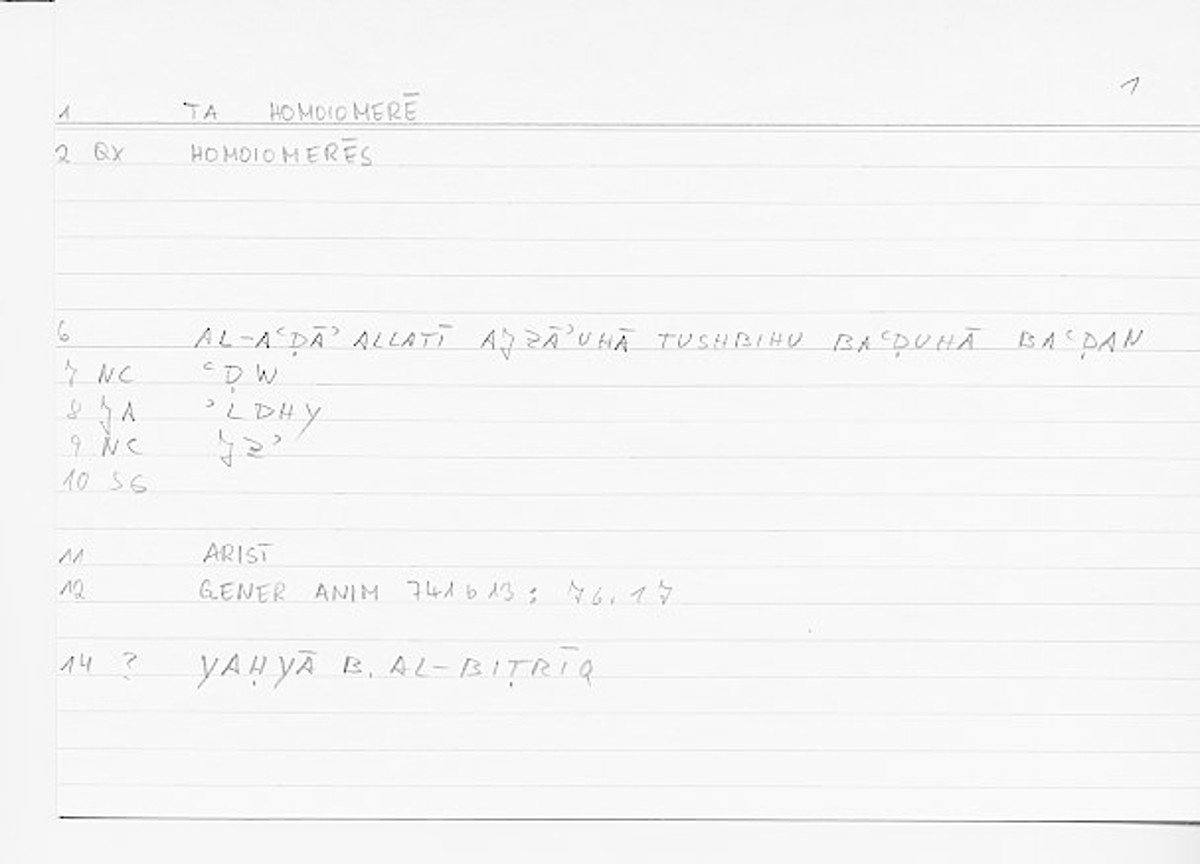 1
1 TA HOMOIOMERĒ
2 QX HOMOIOMERĒS
6 AL-AʿḌĀʾ ALLATĪ AJZĀʾUHĀ TUSHBIHU BAʿḌUHĀ BAʿḌAN
7 NC ʿḌW
8 JA ʾLDHY
9 NC JZʾ
10 SG
11 ARIST
12 GENER ANIM 741b13; 76.17
14 ? YAḤYĀ B. AL-BIṬRĪQ